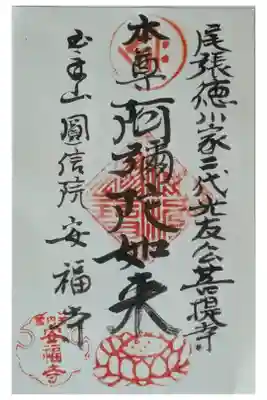 尾張徳川家二代光友公菩提寺
本尊
阿彌陀如来
玉手山
圓信院
安福寺
安福寺